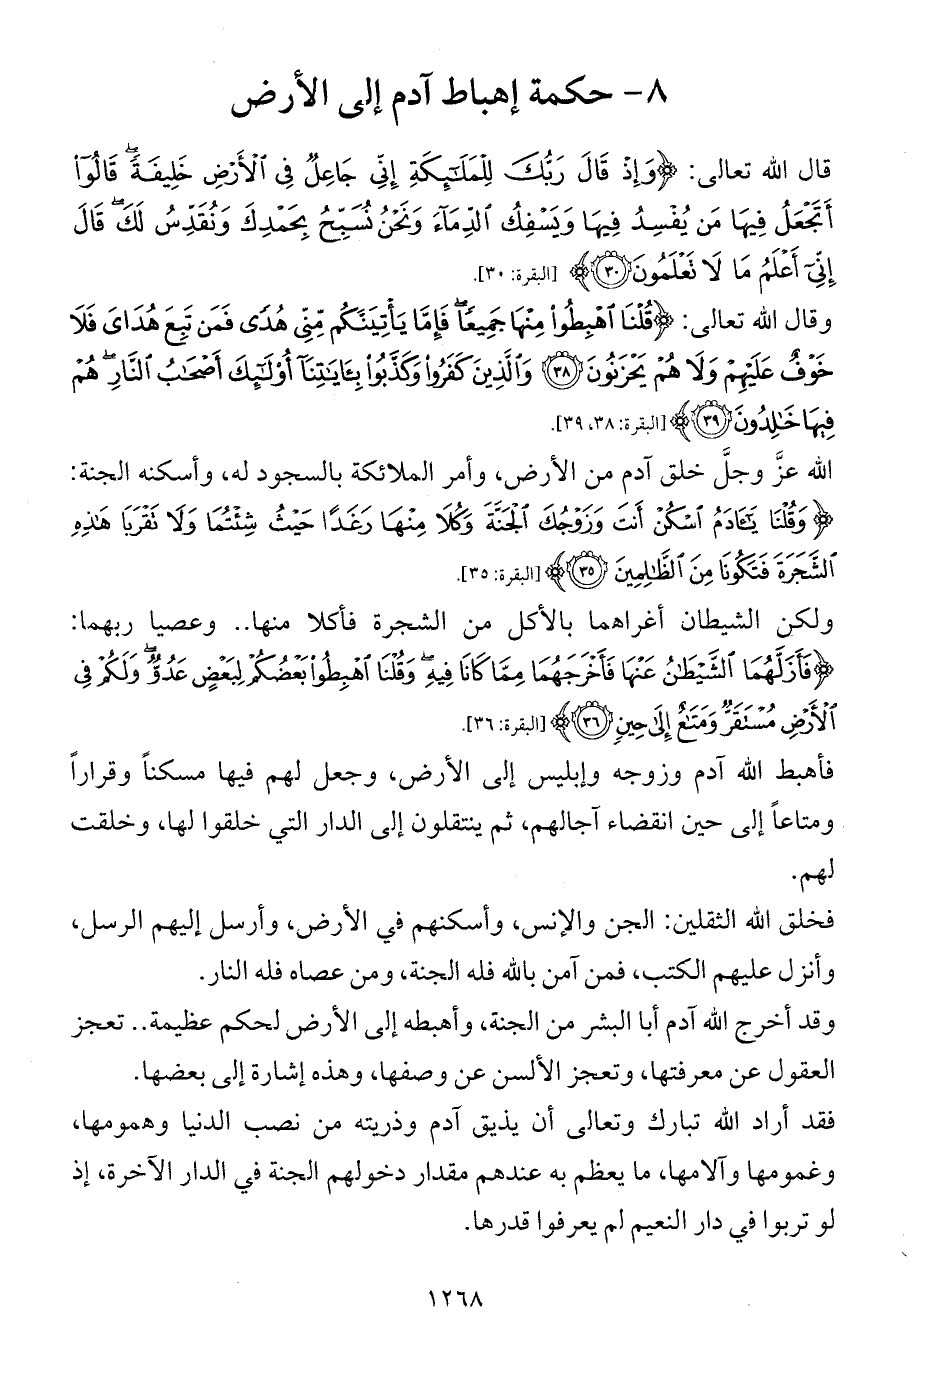 ٨- حكمة إهباط آدم إلى الأرض
قال الله تعالى: ﴿وَإِذْ قَالَ رَبُّكَ لِلْمَلَٰٓئِكَةِ إِنِّي جَاعِلٌ فِي ٱلْأَرْضِ خَلِيفَةًۖ قَالُوٓا۟
أَتَجْعَلُ فِيهَا مَن يُفْسِدُ فِيهَا وَيَسْفِكُ ٱلدِّمَآءَ وَنَحْنُ نُسَبِّحُ بِحَمْدِكَ وَنُقَدِّسُ لَكَۖ قَالَ
إِنِّيٓ أَعْلَمُ مَا لَا تَعْلَمُونَ ٣٠﴾ [البقرة: ٣٠].
وقال الله تعالى: ﴿قُلْنَا ٱهْبِطُوا۟ مِنْهَا جَمِيعًاۖ فَإِمَّا يَأْتِيَنَّكُم مِّنِّي هُدًى فَمَن تَبِعَ هُدَايَ فَلَا
خَوْفٌ عَلَيْهِمْ وَلَا هُمْ يَحْزَنُونَ ٣٨ وَٱلَّذِينَ كَفَرُوا۟ وَكَذَّبُوا۟ بِـَٔايَٰتِنَآ أُو۟لَٰٓئِكَ أَصْحَٰبُ ٱلنَّارِۖ هُمْ
فِيهَا خَٰلِدُونَ ٣٩﴾ [البقرة: ٣٨، ٣٩].
الله عزَّ وجلَّ خلق آدم من الأرض، وأمر الملائكة بالسجود له، وأسكنه الجنة:
﴿وَقُلْنَا يَٰٓـَٔادَمُ ٱسْكُنْ أَنتَ وَزَوْجُكَ ٱلْجَنَّةَ وَكُلَا مِنْهَا رَغَدًا حَيْثُ شِئْتُمَا وَلَا تَقْرَبَا هَٰذِهِ
ٱلشَّجَرَةَ فَتَكُونَا مِنَ ٱلظَّٰلِمِينَ ٣٥﴾ [البقرة: ٣٥].
ولكن الشيطان أغراهما بالأكل من الشجرة فأكلا منها.. وعصيا ربهما:
﴿فَأَزَلَّهُمَا ٱلشَّيْطَٰنُ عَنْهَا فَأَخْرَجَهُمَا مِمَّا كَانَا فِيهِۖ وَقُلْنَا ٱهْبِطُوا۟ بَعْضُكُمْ لِبَعْضٍ عَدُوٌّۖ وَلَكُمْ فِي
ٱلْأَرْضِ مُسْتَقَرٌّ وَمَتَٰعٌ إِلَىٰ حِينٍ ٣٦﴾ [البقرة: ٣٦].
فأهبط الله آدم وزوجه وإبليس إلى الأرض، وجعل لهم فيها مسكناً وقراراً
ومتاعاً إلى حين انقضاء آجالهم، ثم ينتقلون إلى الدار التي خلقوا لها، وخلقت
لهم.
فخلق الله الثقلين: الجن والإنس، وأسكنهم في الأرض، وأرسل إليهم الرسل،
وأنزل عليهم الكتب، فمن آمن بالله فله الجنة، ومن عصاه فله النار.
وقد أخرج الله آدم أبا البشر من الجنة، وأهبطه إلى الأرض لحكم عظيمة.. تعجز
العقول عن معرفتها، وتعجز الألسن عن وصفها، وهذه إشارة إلى بعضها.
فقد أراد الله تبارك وتعالى أن يذيق آدم وذريته من نصب الدنيا وهمومها،
وغمومها وآلامها، ما يعظم به عندهم مقدار دخولهم الجنة في الدار الآخرة، إذ
لو تربوا في دار النعيم لم يعرفوا قدرها.
١٢٦٨